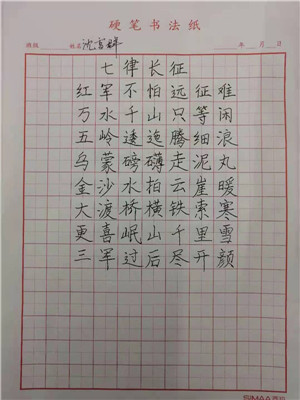 硬笔书法纸
班级 姓名 沈 年 月 日
七律长征
红军不怕远征难
万水千山只等闲
五岭逶迤腾细浪
乌蒙磅礴走泥丸
金沙水拍云崖暖
大渡桥横铁索寒
更喜岷山千里雪
三军过后尽开颜